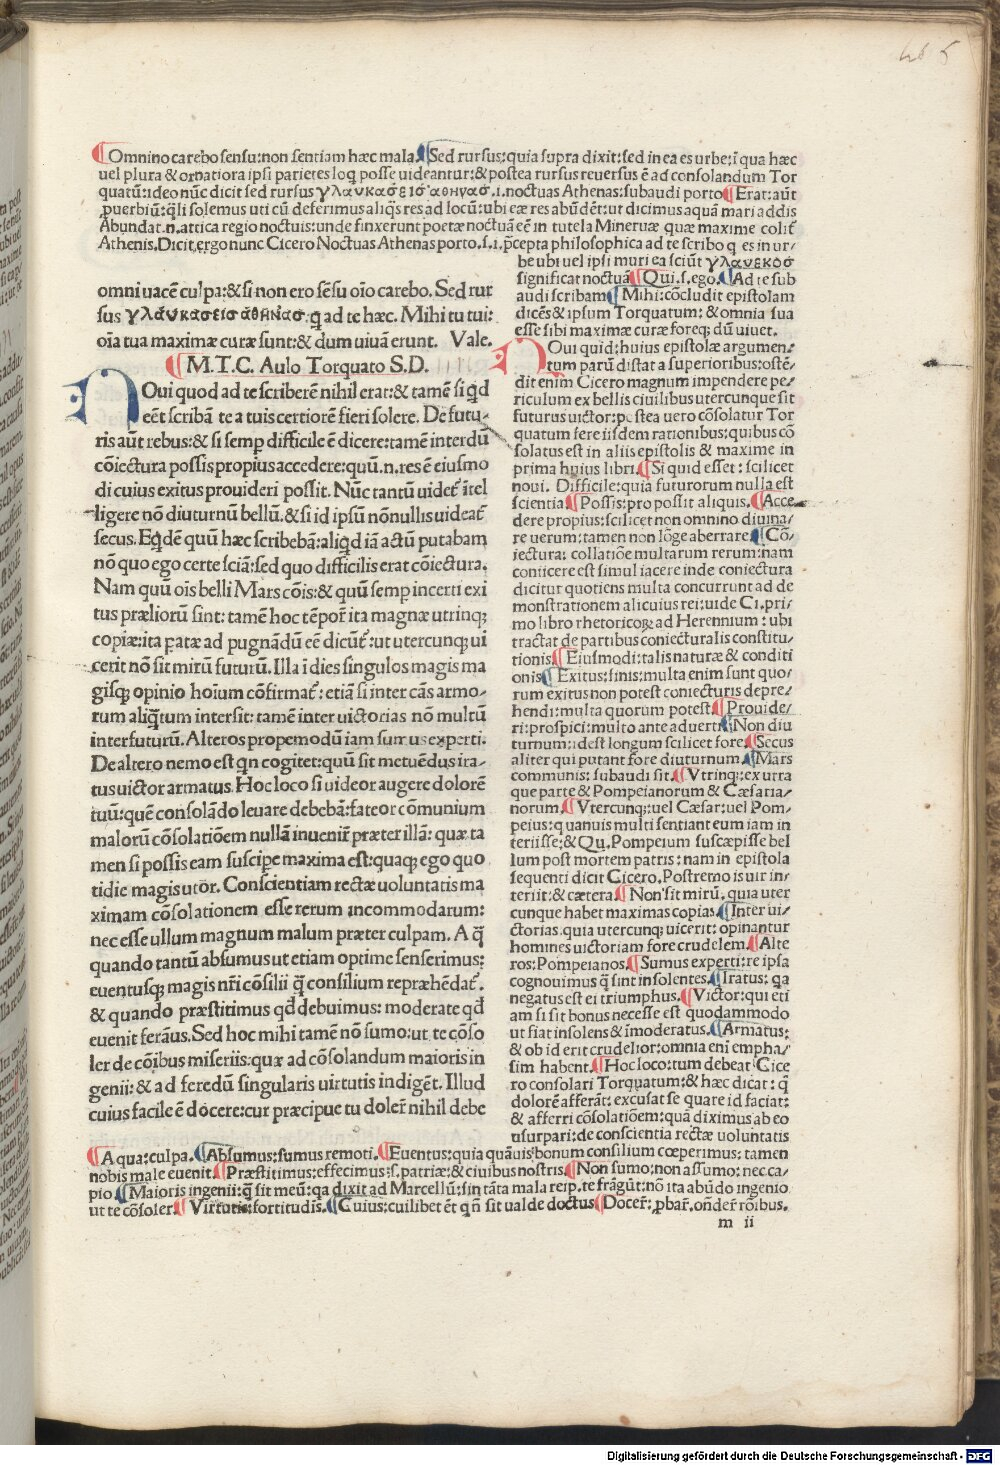 ¶Omnino carebo sensu: non sentiam hæc mala.¶Sed rursus: quia supra dixit: sed in ea es urbe: ī qua hæc
uel plura & ornatiora ipsi parietes loq̄ posse uideantur: & postea rursus reuersus ē ad consolandum Tor
quatū: ideo nūc dicit sed rursus γλαυκασεισ αθηνασ .i. noctuas Athenas: subaudi porto¶Erat: aūt
ꝓuerbiū: q̄li solemus uti cū deferimus aliq̄s res ad locū: ubi eæ res abūdēt: ut dicimus aquā mari addis
Abundat .n. attica regio noctuis: unde finxerunt poetæ noctuā eē in tutela Mineruæ quæ maxime colit᷑
Athenis. Dicit ergo nunc Cicero Noctuas Athenas porto .s.i. p̄cepta philosophica ad te scribo q̄ es in ur⸗
omni uacē culpa: & si non ero sēsu oīo carebo. Sed rur
sus γλαυκασεισ αθηνασ. q̄ ad te hæc. Mihi tu tui:
oīa tua maximæ curæ sunt: & dum uiuā erunt. Vale.
¶M.T.C. Aulo Torquato S.D.
NOui quod ad te scriberē nihil erat: & tamē si qd
eēt scribā te a tuis certiorē fieri solere. De futu⸗
ris aūt rebus: & si semꝑ difficile ē dicere: tamē interdū
cōiectura possis propius accedere: quū .n. res ē eiusmo
di cuius exitus prouideri possit. Nūc tantū uidet᷑ ītel
ligere nō diuturnū bellū. & si id ipsū nōnullis uideat᷑
secus. Eqdē quū hæc scribebā: aliqd iā actū putabam
nō quo ego certe sciā: sed quo difficilis erat cōiectura.
Nam quū oīs belli Mars cōis: & quū semꝑ incerti exi
tus præliorū sint: tamē hoc tēpor̄ ita magnæ utrinqꝫ
copiæ: ita ꝑatæ ad pugnādū eē dicūt᷑: ut utercunqꝫ ui
cerit nō sit mirū futurū. Illa ī dies singulos magis ma
gisqꝫ opinio hoīum cōfirmat᷑: etiā si inter cās armo⸗
rum aliq̄tum intersit: tamē inter uictorias nō multū
interfuturū. Alteros propemodū iam sumus experti.
De altero nemo est qn cogitet: quū sit metuēdus ira⸗
tus uictor armatus. Hoc loco si uideor augere dolorē
tuū: quē consolādo leuare debebā: fateor cōmunium
malorū cōsolatiōem nullā inuenir̄ præter illā: quæ ta
men si possis eam suscipe maxima est: quaqꝫ ego quo
tidie magis utor. Conscientiam rectæ uoluntatis ma
ximam cōsolationem esse rerum incommodarum:
nec esse ullum magnum malum præter culpam. A q̄
quando tantū absumus ut etiam optime senserimus:
euentusqꝫ magis nr̄i cōsilii q̄ consilium repræhēdat᷑.
& quando præstitimus qd̄ debuimus: moderate qd̄
euenit ferāus. Sed hoc mihi tamē nō sumo: ut te cōso
ler de cōibus miseriis: quæ ad cōsolandum maioris in
genii: & ad feredū singularis uirtutis indigēt. Illud
cuius facile ē docere: cur præcipue tu doler̄ nihil debe
be ubi uel ipsi muri ea sciūt γλανεκοσ
significat noctuā¶Qui .s. ego.¶Ad te sub
audi scribam¶Mihi: cōcludit epistolam
dicēs & ipsum Torquatum: & omnia sua
esse sibi maximæ curæ foreqꝫ dū uiuet.
NOui quid: huius epistolæ argumen⸗
tum parū distat a superioribus: ostē⸗
dit enim Cicero magnum impendere pe⸗
riculum ex bellis ciuilibus utercunque sit
futurus uictor: postea uero cōsolatur Tor
quatum fere iisdem rationibus: quibus cō
solatus est in aliis epistolis & maxime in
prima huius libri.¶Si quid esset: scilicet
noui. Difficile: quia futurorum nulla est
scientia¶Possis: pro possit aliquis.¶Acce
dere propius: scilicet non omnino diuina⸗
re uerum: tamen non lōge aberrare¶Cō⸗
iectura: collatiōe multarum rerum: nam
coniicere est simul iacere inde coniectura
dicitur quotiens multa concurrunt ad de
monstrationem alicuius rei: uide Ci. pri⸗
mo libro rhetoricoꝝ ad Herennium: ubi
tractat de partibus coniecturalis constitu⸗
tionis¶Eiusmodi: talis naturæ & conditi
onis¶Exitus: finis: multa enim sunt quo⸗
rum exitus non potest coniecturis depre⸗
hendi: multa quorum potest¶Prouide⸗
ri: prospici: multo ante aduerti¶Non diu
turnum: idest longum scilicet fore¶Secus
aliter qui putant fore diuturnum¶Mars
communis: subaudi sit.¶Vtrinqꝫ: ex utra
que parte & Pompeianorum & Cæsaria⸗
norum.¶Vtercunqꝫ: uel Cæsar: uel Pom⸗
peius: quanuis multi sentiant eum iam in
teriisse: & Qu. Pompeium suscæpisse bel
lum post mortem patris: nam in epistola
sequenti dicit Cicero. Postremo is uir in⸗
teriit: & cætera¶Non sit mirū. quia uter
cunque habet maximas copias.¶Inter ui⸗
ctorias. quia utercunqꝫ uicerit: opinantur
homines uictoriam fore crudelem.¶Alte
ros: Pompeianos.¶Sumus experti: re ipsa
cognouimus q̄ sint insolentes.¶Iratus: qa
negatus est ei triumphus.¶Victor: qui eti
am si sit bonus necesse est quodammodo
ut fiat insolens & īmoderatus.¶Armatus:
& ob id erit crudelior: omnia eni empha⸗
sim habent.¶Hoc loco: tum debeat Cice
ro consolari Torquatum: & hæc dicat: q̄
dolorē afferāt: excusat se quare id faciat:
& afferri cōsolatiōem: quā diximus ab eo
usurpari: de conscientia rectæ uoluntatis
¶A qua: culpa.¶Absumus: sumus remoti.¶Euentus: quia quāuis bonum consilium cœperimus: tamen
nobis male euenit.¶Præstitimus: effecimus: s. patriæ: & ciuibus nostris.¶Non sumo: non assumo: nec ca⸗
pio¶Maioris ingenii: q̄ sit meū: qa dixit ad Marcellū: sin tāta mala reip. te frāgūt: nō ita abūdo ingenio
ut te cōsoler.¶Virtutis: fortitudis.¶Cuius: cuilibet ēt qn̄ sit ualde doctus¶Docer̄: ꝓbar̄. oñder̄ rōibus.
m ii
Digitalisierung gefördert durch die Deutsche Forschungsgemeinschaft - DFG